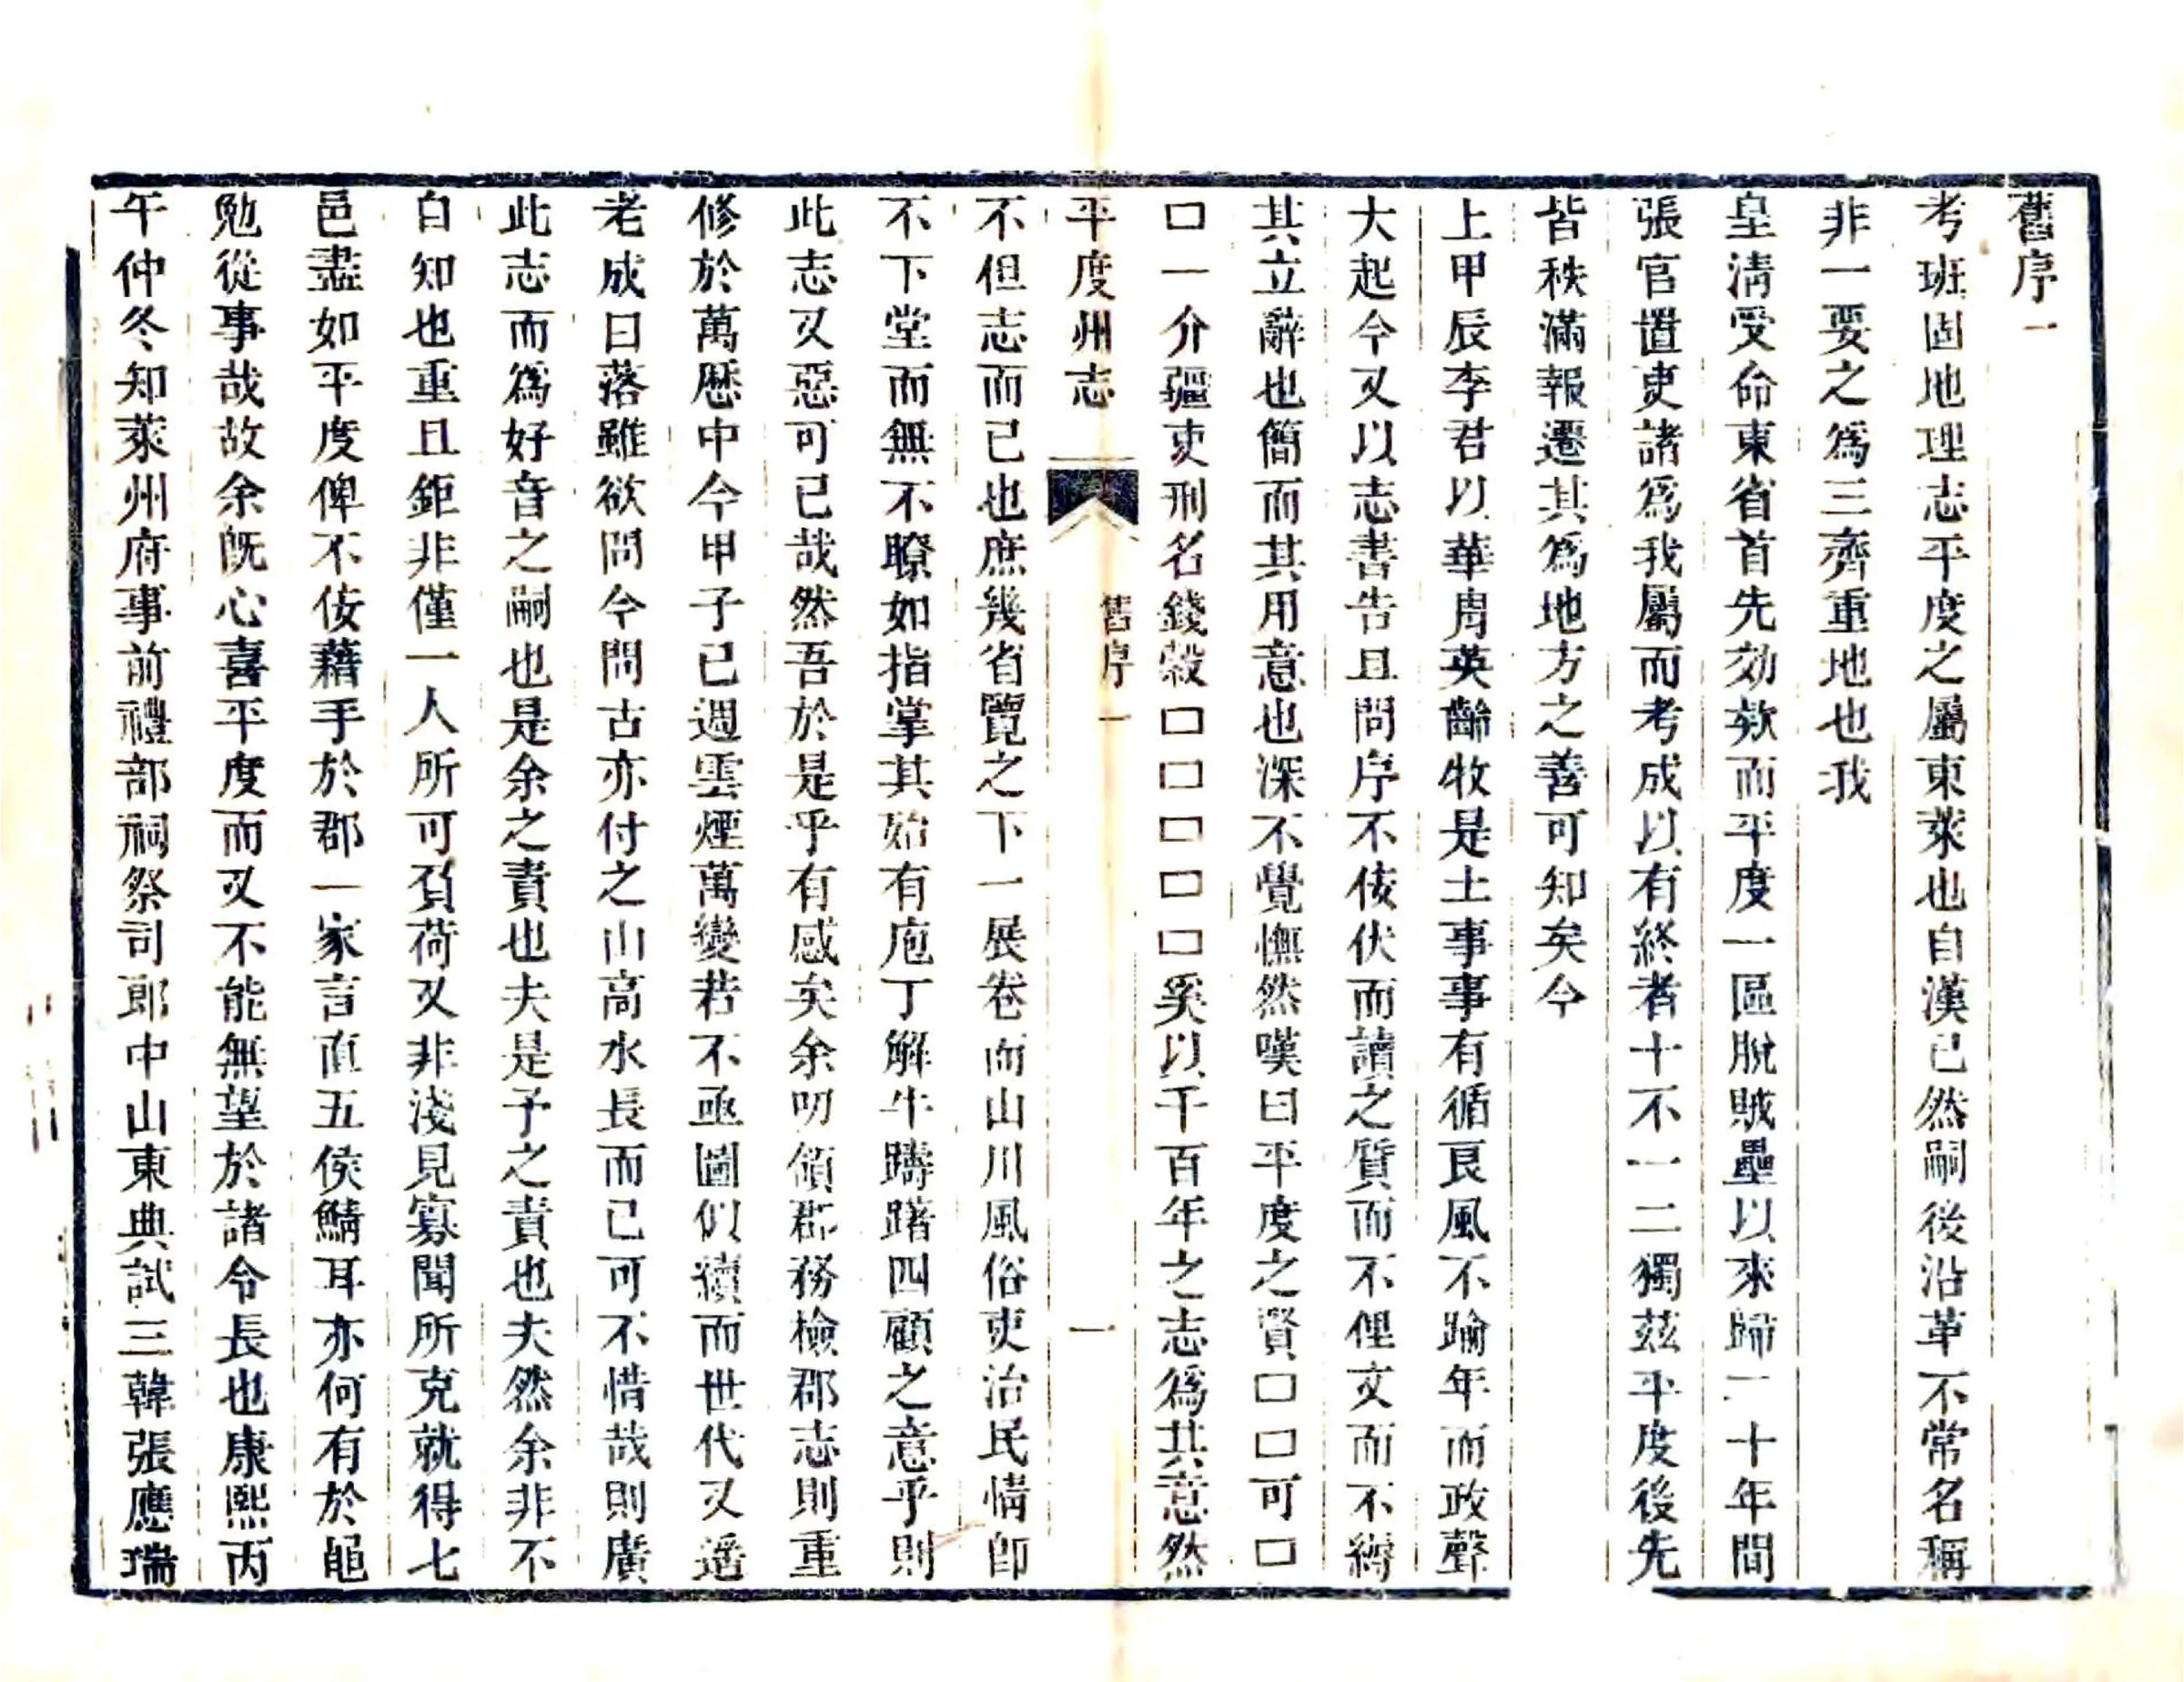 舊序一
考班固地理志平度之屬東萊也自漢已然嗣後沿革不常名稱
非一要之為三齊重地也我
皇清受命東省首先効欵而平度一區脫賊壘以來歸二十年間
張官置吏諸為我屬而考成以有終者十不一二獨茲平度後先
皆秩滿報遷其為地方之善可知矣今
上甲辰李君以華胄英齡牧是土事事有循良風不踰年而政聲
大起今又以志書告且問序不佞伏而讀之質而不俚文而不縟
其立辭也簡而其用意也深不覺憮然嘆曰平度之賢□□可□
□一介疆吏刑名錢穀□□□□□奚以千百年之志為其意然
平度州志 舊序一 一
不但志而已也庶幾省覽之下一展卷而山川風俗吏治民情即
不下堂而無不瞭如指掌其始有庖丁解牛躊躇四顧之意乎則
此志又惡可已哉然吾於是乎有感矣余叨領郡務檢郡志則重
修於萬歷中今甲子已週雲煙萬變若不亟圖似續而世代又遙
老成日落雖欲問今問古亦付之山高水長而已可不惜哉則廣
此志而為好音之嗣也是余之責也夫是予之責也夫然余非不
自知也重且鉅非僅一人所可負荷又非淺見寡聞所克就得七
邑盡如平度俾不佞藉手於郡一家言直五侯鯖耳亦何有於黽
勉從事哉故余旣心喜平度而又不能無望於諸令長也康熙丙
午仲冬知萊州府事前禮部祠祭司郎中山東典試三韓張應瑞